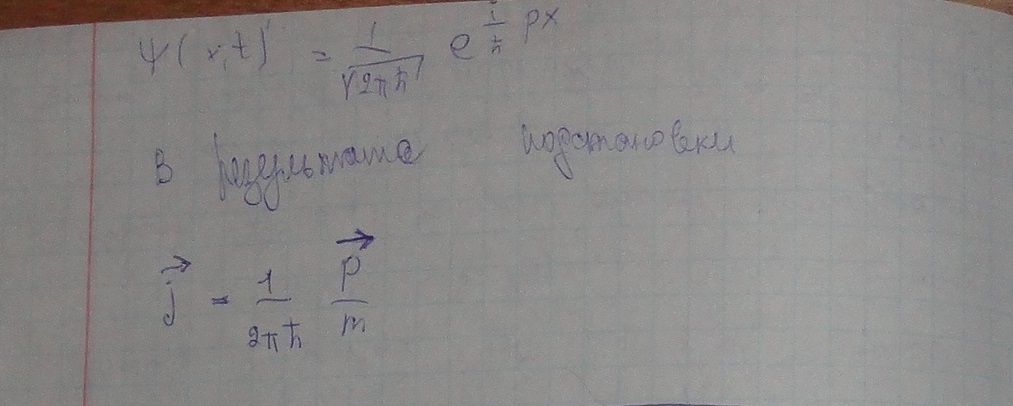 ψ(x,t) = 1/√2πħ e^(i/ħ px)
в результате подстановки
j⃗ = 1/2πħ p⃗/m